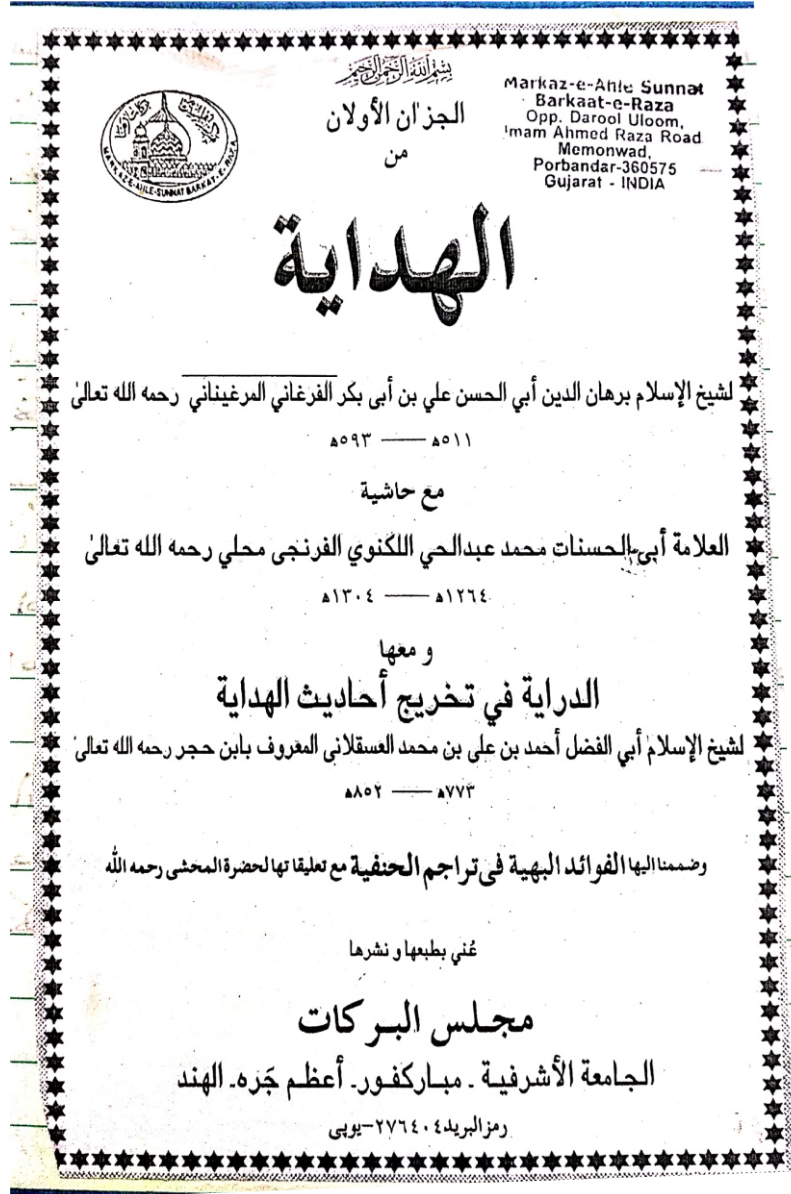 بسم الله الرحمن الرحيم
الجزان الأولان
من
Markaz-e-Ahle Sunnat
Barkaat-e-Raza
Opp. Darool Uloom,
Imam Ahmed Raza Road
Memonwad,
Porbandar-360575
Gujarat - INDIA
MARKAZ-E-AHLE-SUNNAT BARKAT-E-RAZA
الهداية
لشيخ الإسلام برهان الدين أبي الحسن علي بن أبى بكر الفرغاني المرغيناني رحمه الله تعالىٰ
٥١١ھ —— ٥٩٣ھ
مع حاشية
العلامة أبي الحسنات محمد عبدالحي اللكنوي الفرنجى محلي رحمه الله تعالىٰ
١٢٦٤ھ —— ١٣٠٤ھ
و معها
الدراية في تخريج أحاديث الهداية
لشيخ الإسلام أبي الفضل أحمد بن على بن محمد العسقلانى المعروف بابن حجر رحمه الله تعالىٰ
٧٧٣ھ —— ٨٥٢ھ
وضممنا اليها الفوائد البهية فى تراجم الحنفية مع تعليقاتها لحضرة المحشى رحمه الله
عُني بطبعها و نشرها
مجلس البركات
الجامعة الأشرفية ـ مباركفور ـ أعظم جَره ـ الهند
رمز البريد ٢٧٦٤٠٤-يوپى